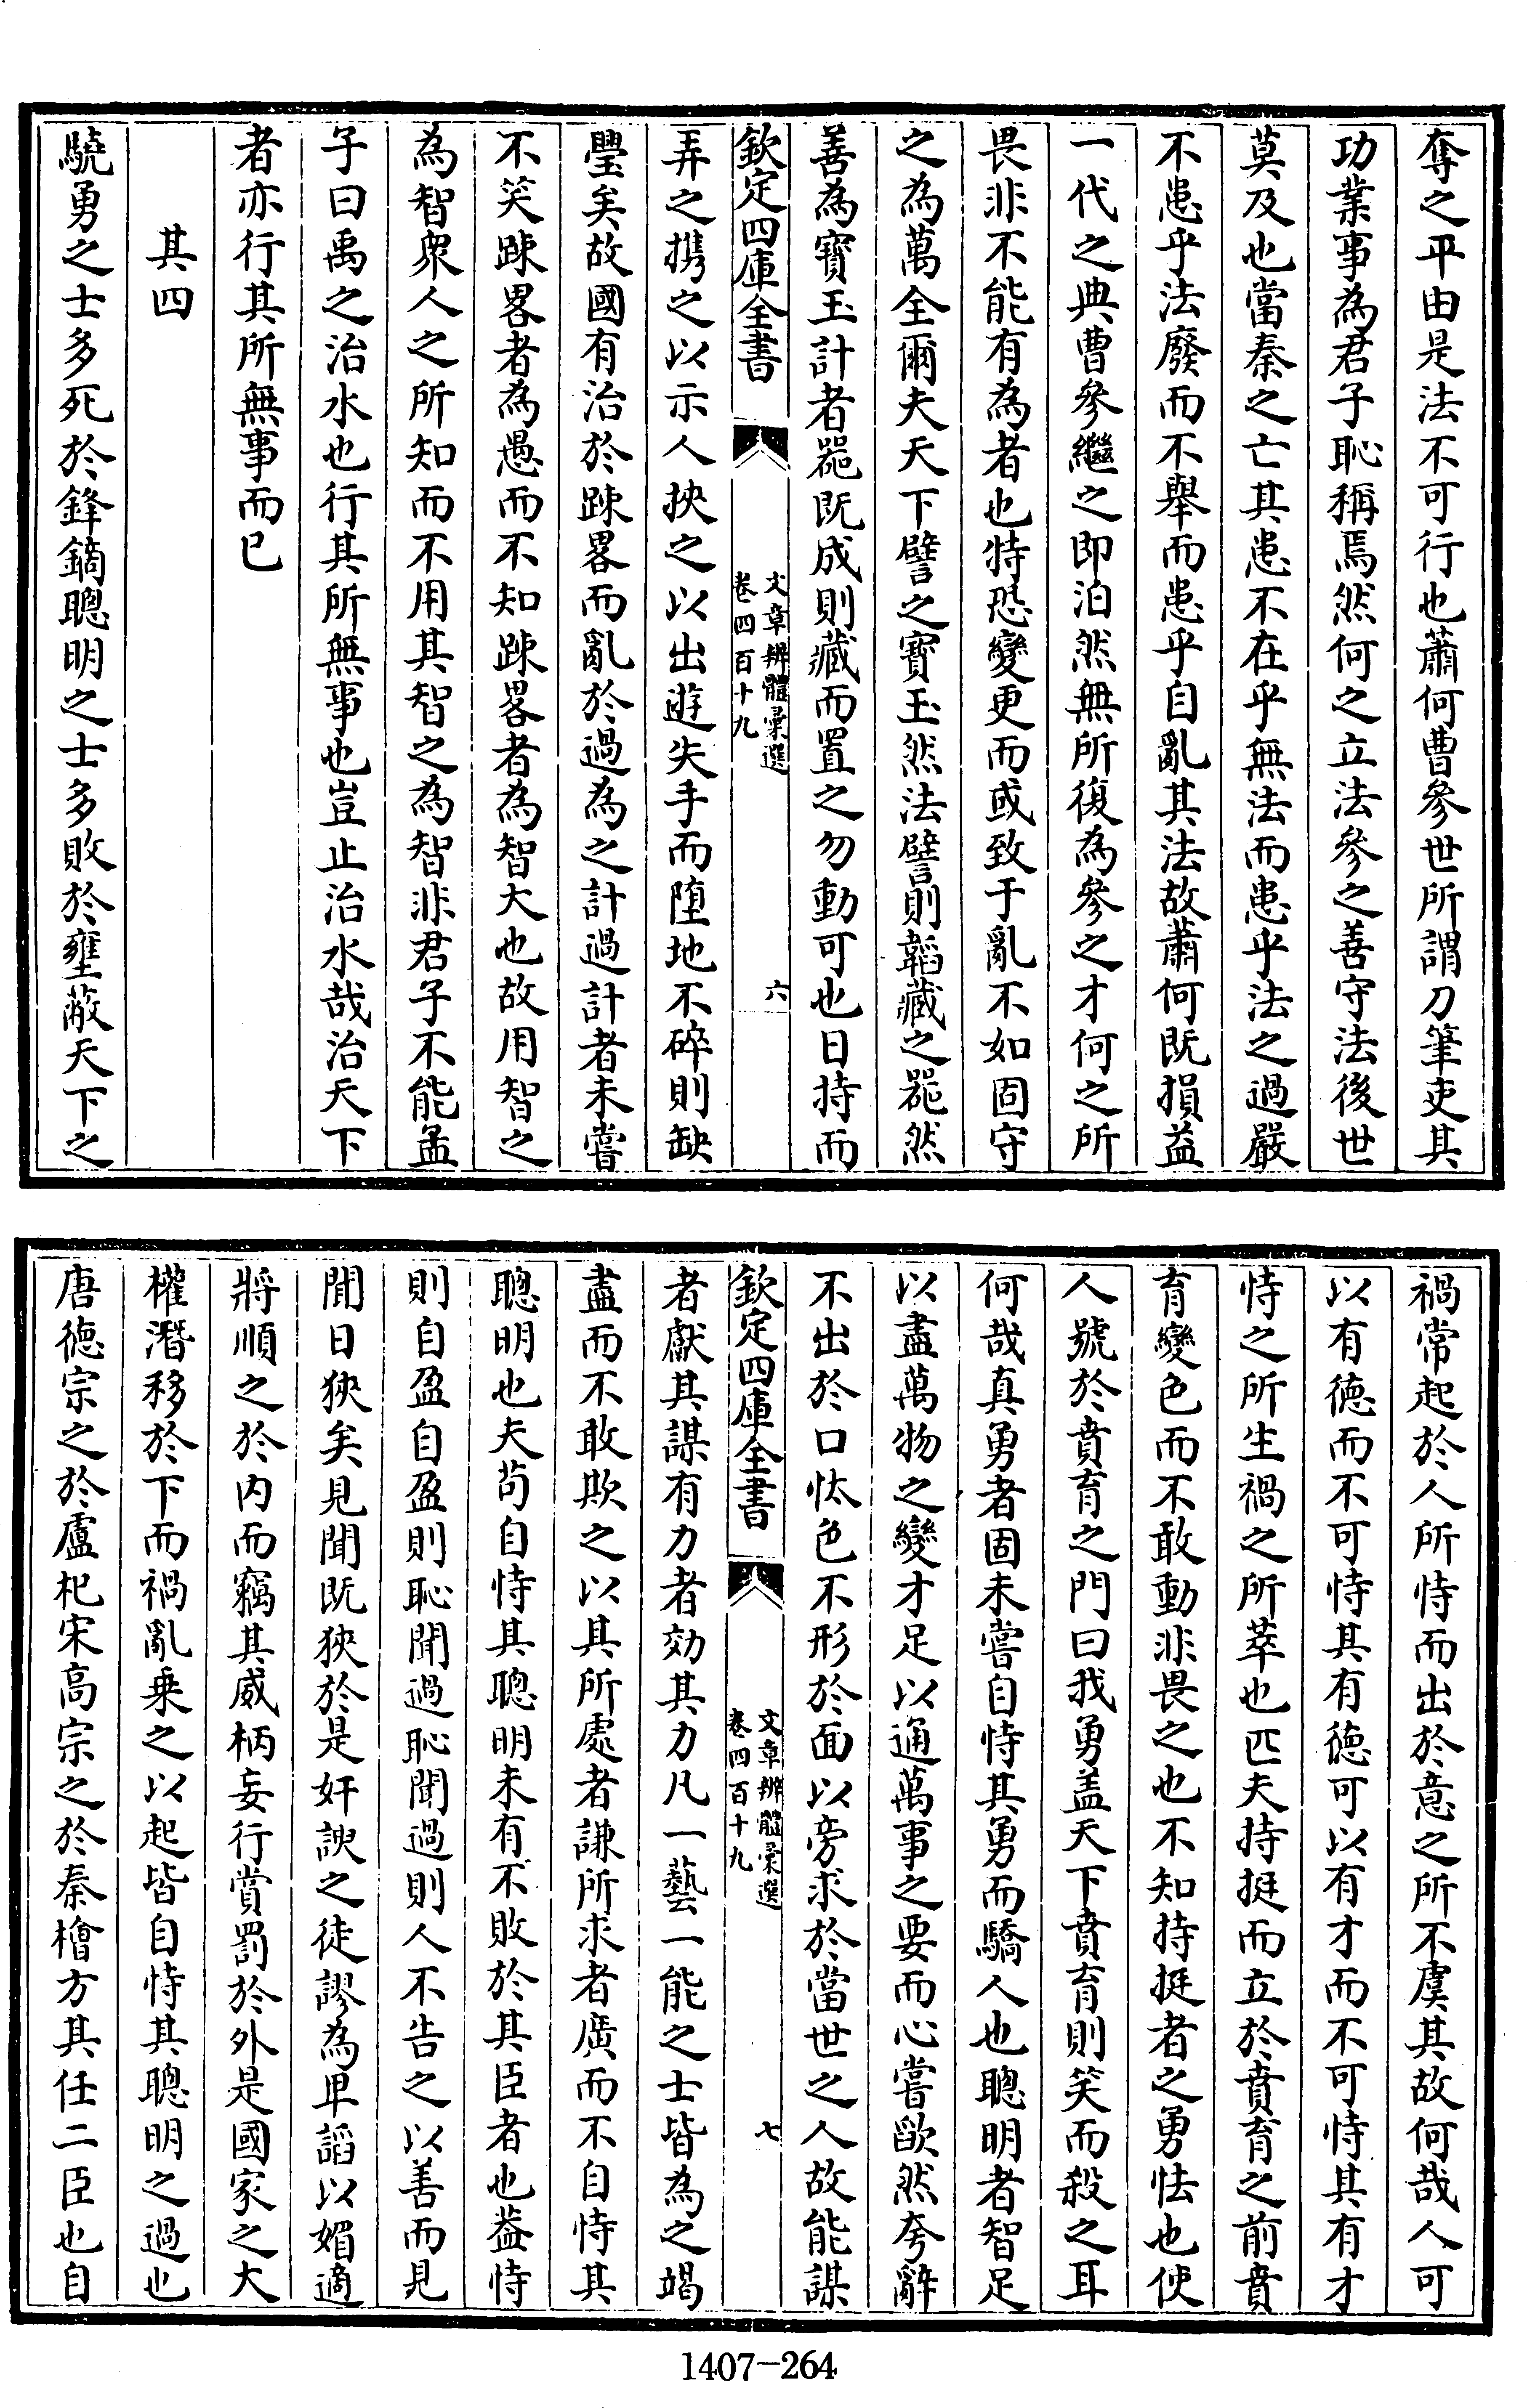 奪之平由是法不可行也蕭何曹參世所謂刀筆吏其
功業事為君子恥稱焉然何之立法參之善守法後世
莫及也當秦之亡其患不在乎無法而患乎法之過嚴
不患乎法廢而不舉而患乎自亂其法故蕭何既損益
一代之典曹參繼之即泊然無所復為參之才何之所
畏非不能有為者也特恐變更而或致于亂不如固守
之為萬全爾夫天下譬之寶玉然法譬則韜藏之噐然
善為寶玉計者噐既成則藏而置之勿動可也日持而
欽定四庫全書
文章辨體彙選
卷四百十九
六
弄之攜之以示人挾之以出遊失手而墮地不碎則缺
璺矣故國有治於踈畧而亂於過為之計過計者未嘗
不笑踈畧者為愚而不知踈畧者為智大也故用智之
為智衆人之所知而不用其智之為智非君子不能孟
子曰禹之治水也行其所無事也豈止治水哉治天下
者亦行其所無事而已
其四
驍勇之士多死於鋒鏑聰明之士多敗於壅蔽天下之
禍常起於人所恃而出於意之所不虞其故何哉人可
以有徳而不可恃其有徳可以有才而不可恃其有才
恃之所生禍之所萃也匹夫持挺而立於賁育之前賁
育變色而不敢動非畏之也不知持挺者之勇怯也使
人號於賁育之門曰我勇盖天下賁育則笑而殺之耳
何哉真勇者固未嘗自恃其勇而驕人也聰明者智足
以盡萬物之變才足以通萬事之要而心嘗歉然夸辭
不出於口怢色不形於面以旁求於當世之人故能謀
欽定四庫全書
文章辨體彙選
卷四百十九
七
者獻其謀有力者効其力凡一藝一能之士皆為之竭
盡而不敢欺之以其所處者謙所求者廣而不自恃其
聰明也夫茍自恃其聰明未有不敗於其臣者也葢恃
則自盈自盈則恥聞過恥聞過則人不告之以善而見
聞日狹矣見聞既狹於是奸諛之徒謬為卑謟以媚適
將順之於内而竊其威柄妄行賞罰於外是國家之大
權潛移於下而禍亂乗之以起皆自恃其聰明之過也
唐徳宗之於盧杞宋高宗之於秦檜方其任二臣也自
1407-264